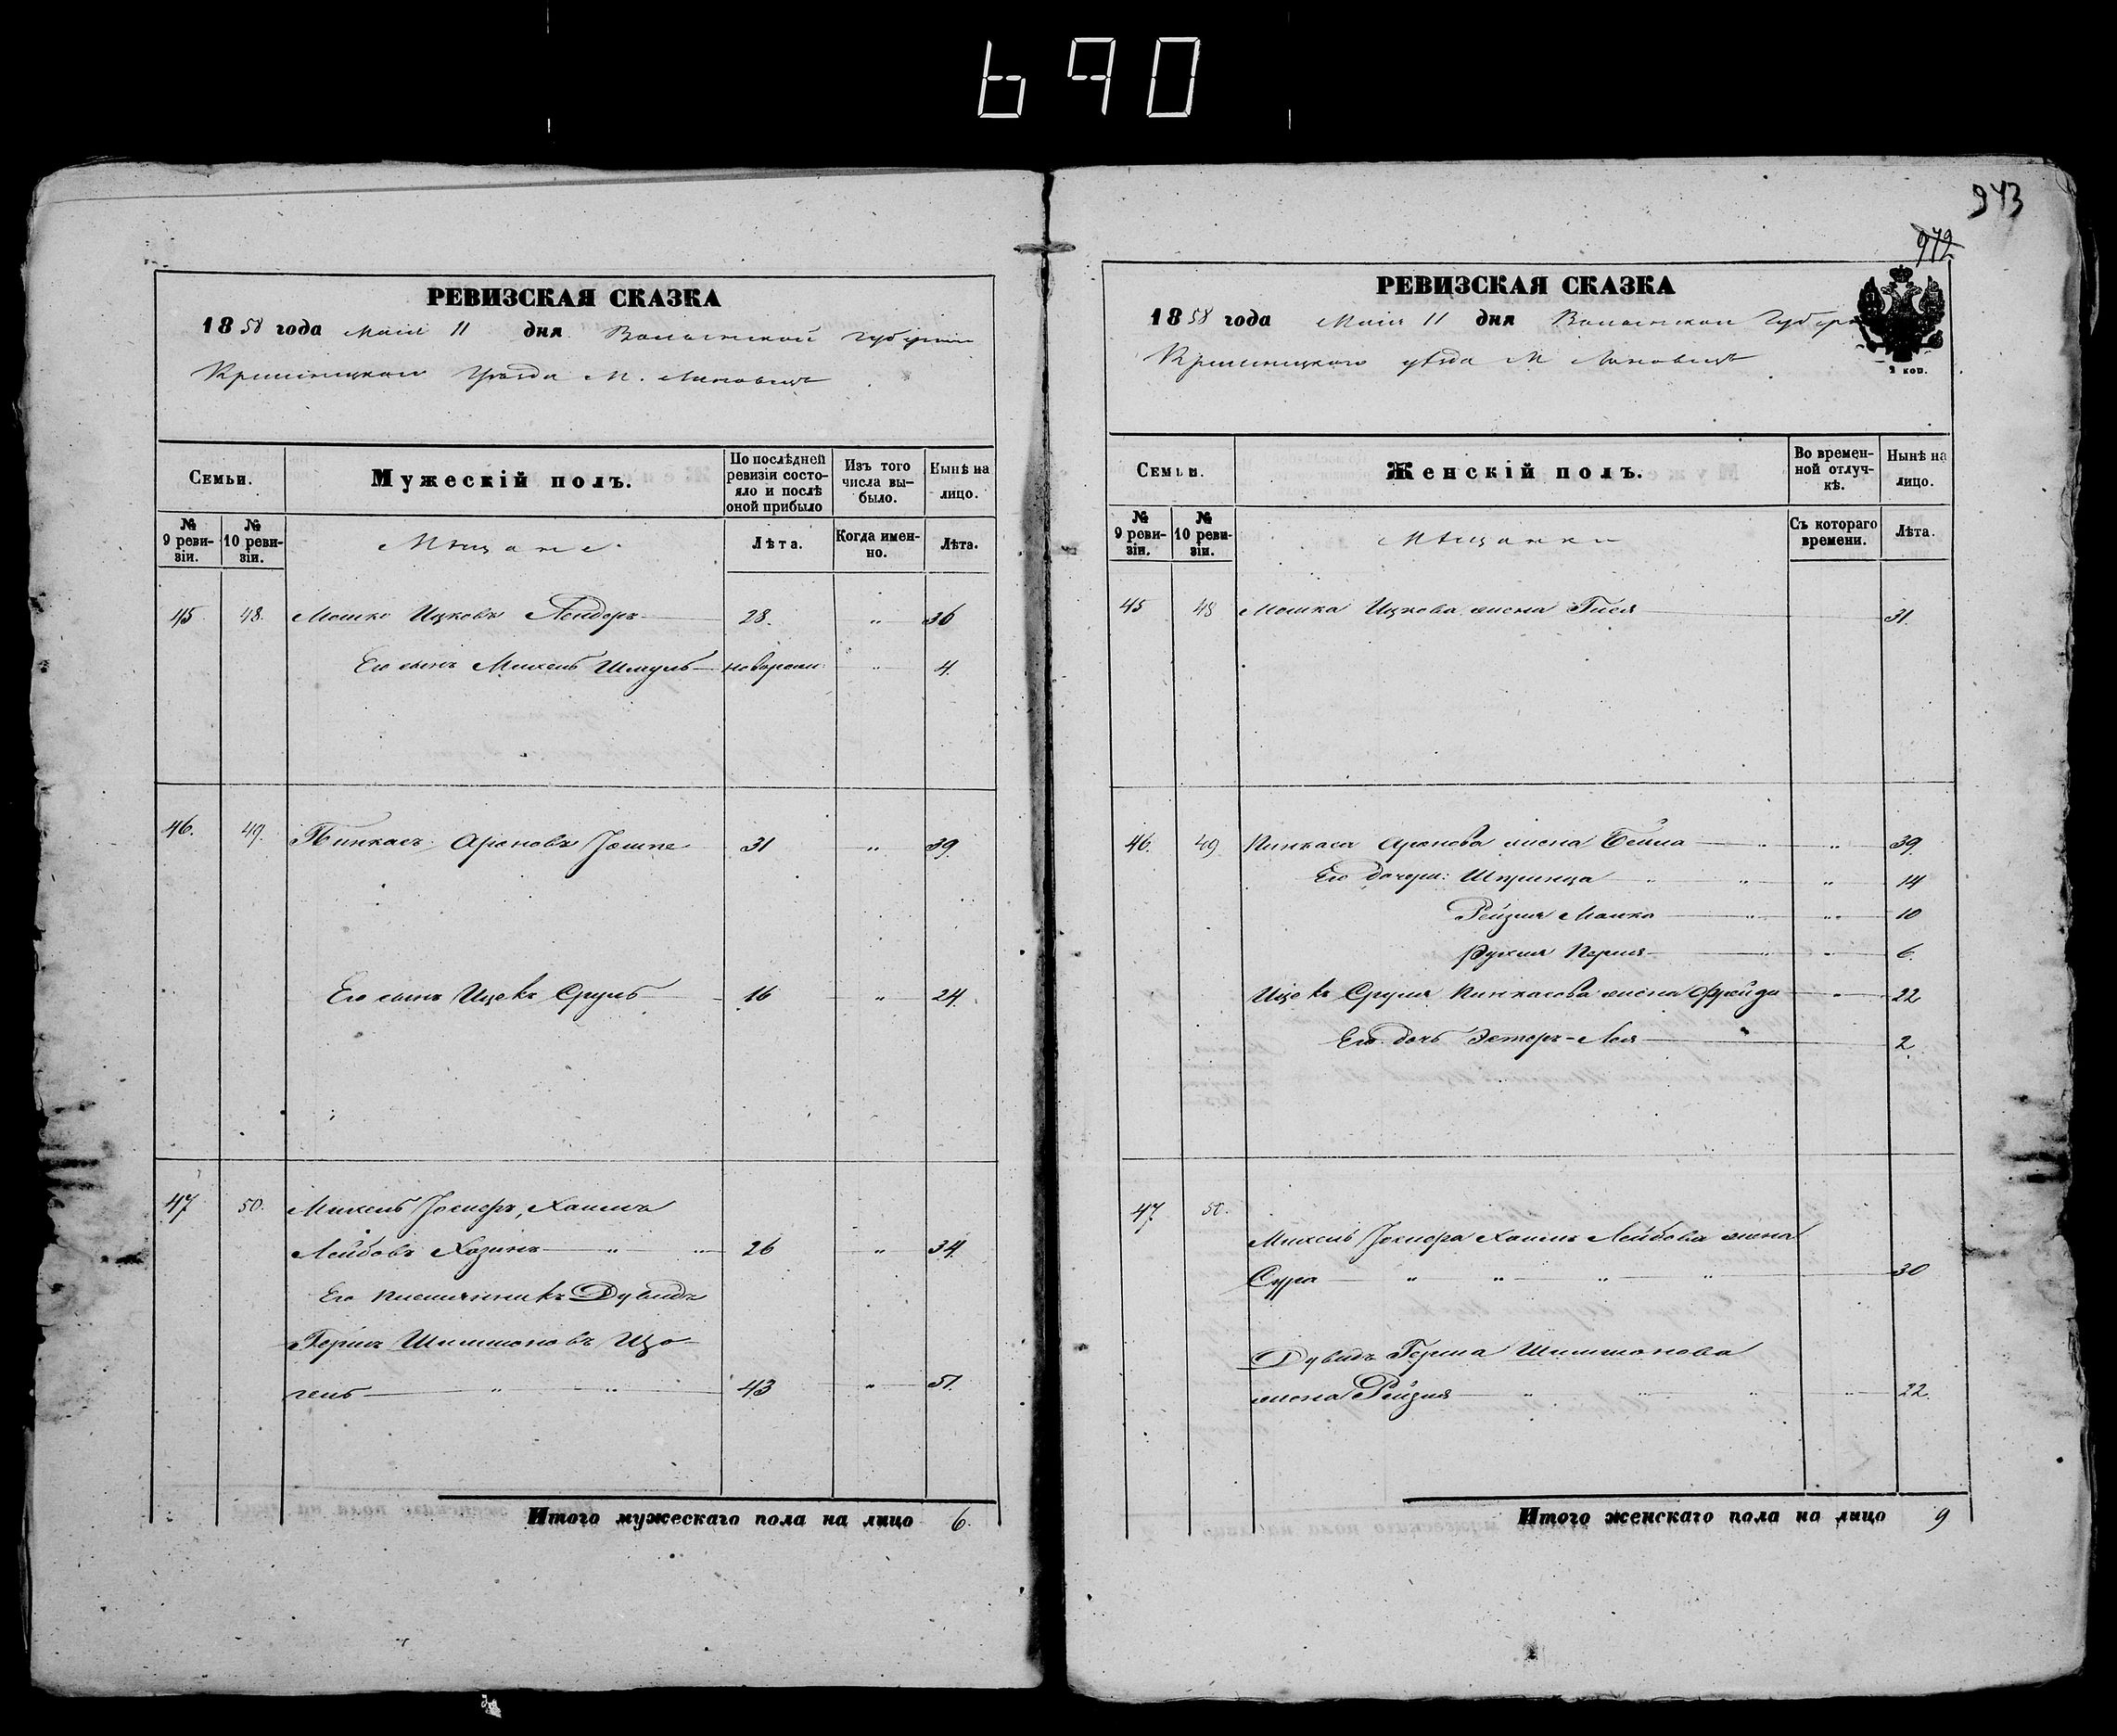 690
943
972
РЕВИЗСКАЯ СКАЗКА
1858 года Маія 11 дня Волынской губерніи
Кременецкого уѣзда М. Ляховецъ
Семьи.
Мужескій полъ.
По послѣдней ревизіи состо-
яло и послѣ
оной прибыло
Изъ того
числа вы-
было.
Нынѣ на
лицо.
№
9 реви-
зіи.
№
10 реви-
зіи.
Мещане
Лѣта.
Когда имен-
но.
Лѣта.
45 48. Мошко Ицковъ 28. „ 36
Его сынъ Михель Шмуль новорожд „ 4.
46. 49. Пинкасъ Ароновъ Іошпе 31 „ 39.
Его сынъ Ицекъ Сруль 16 „ 24.
47 50. Михель Іосиеръ, Хаимъ
Лейбовъ Хазинъ „ „ 26 „ 34.
Его племянникъ Дувидъ
Гершъ Шимшоновъ
43 „ 51.
Итого мужескаго пола на лицо 6.
РЕВИЗСКАЯ СКАЗКА
1858 года Маія 11 дня Волынской Губерн
Кременецкого уѣзда М Ляховецъ
2 коп.
Семьи.
Женскій полъ.
Во времен-
ной отлуч-
кѣ.
Нынѣ на
лицо.
№
9 реви-
зіи.
№
10 реви-
зіи.
Мещанки
Съ котораго
времени.
Лѣта.
45 48 Мошка Ицкова жена Гися 31.
46. 49 Пинкаса Аронова жена Бейла „ „ 39.
Его дочери: Шпринца „ „ „ 14
Рейзия Малка „ „ 10
Рухля Перля „ „ 6.
Ицекъ Сруля Пинкасова жена Фрейда „ 22
Его дочь Эстеръ-Лея 2
47. 50. Михель Іосиера Хаимъ Лейбова жена
Сура „ „ „ „ 30
Дувидъ Герша Шимшонова
жена Рейзия „ „ „ „ 22.
Итого женскаго пола на лицо 9